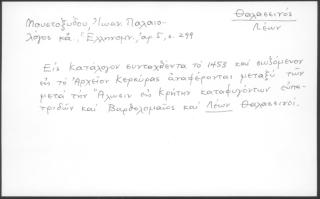 Θαλασσινός
Λέων
Μουστοξύδου, Ἰωαν. Παλαιο-
λόγος κἄ., Ἑλληνομν., ἀρ. 5, σ. 299
Εἰς Κατάλογον συνταχθέντα τὸ 1453 καὶ σωζόμενον
εἰς τὸ Ἀρχεῖον Κερκύρας ἀναφέρονται μεταξὺ τῶν
μετὰ τὴν Ἅλωσιν εἰς Κρήτην καταφυγόντων εὐπα-
τριδῶν καὶ Βαρθολομαῖος καὶ Λέων Θαλασσινοί.